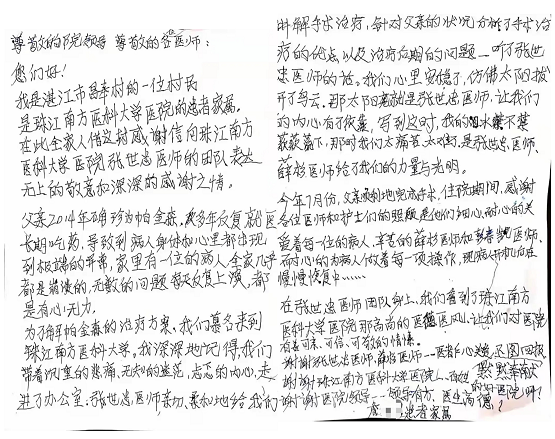 尊敬的院领导 尊敬的各医师:
您们好!
我是湛江市 村的一位村民
是珠江南方医科大学医院的患者家属。
在此全家人借这封感谢信向珠江南方
医科大学医院张世忠医师的团队表达
无上的敬意和深深的感谢之情。
父亲2014年确诊帕金森, 多年反复就医
长期吃药,导致到病人身体和心里都出现
到极端的 ,家里有一位的病人全家几乎
都是崩溃的,无数的问题 反复上演,都
是有心无力。
为了解帕金森的治疗方案、我们慕名来到
珠江南方医科大学。我深深地记得,我们
带着沉重的悲痛,无知的迷茫,忐忑的内心,走
进了办公室,张世忠医师亲切、柔和地给我们
讲解手术治疗,针对父亲的状况分析了手术治
疗的优点,以及治疗后期的问题一一听了张世
忠医师的话。我们心里安稳了,仿佛太阳拨
开了乌云。那太阳亮就是张世忠医师.让我们
的内心有了依靠,写到这时,我的泪水禁不禁
簌簌留下,那时我们太痛苦,太难,是张世忠医师、
薛杉医师给了我们的力量与光明。
今年7月份,父亲顺利地完成手术,住院期间,感谢
各位医师和护士们的照顾,是他们细心、耐心的关
爱着每一位的病人,辛苦的薛杉医师和 医师
耐心的为病人做着每一项操作,现病人开机后在
慢慢恢复中……
在张世忠医师团队身上,我们看到了珠江南方
医科大学医院那高尚的医德医风,让我们对医院
有着可亲、可信、可敬的情怀。
谢谢张世忠医师,薛杉医师一一医者仁心
谢谢珠江南方医科大学医院 默默奉献
谢谢医院领导一一领导有方、医生高德!
患者家属